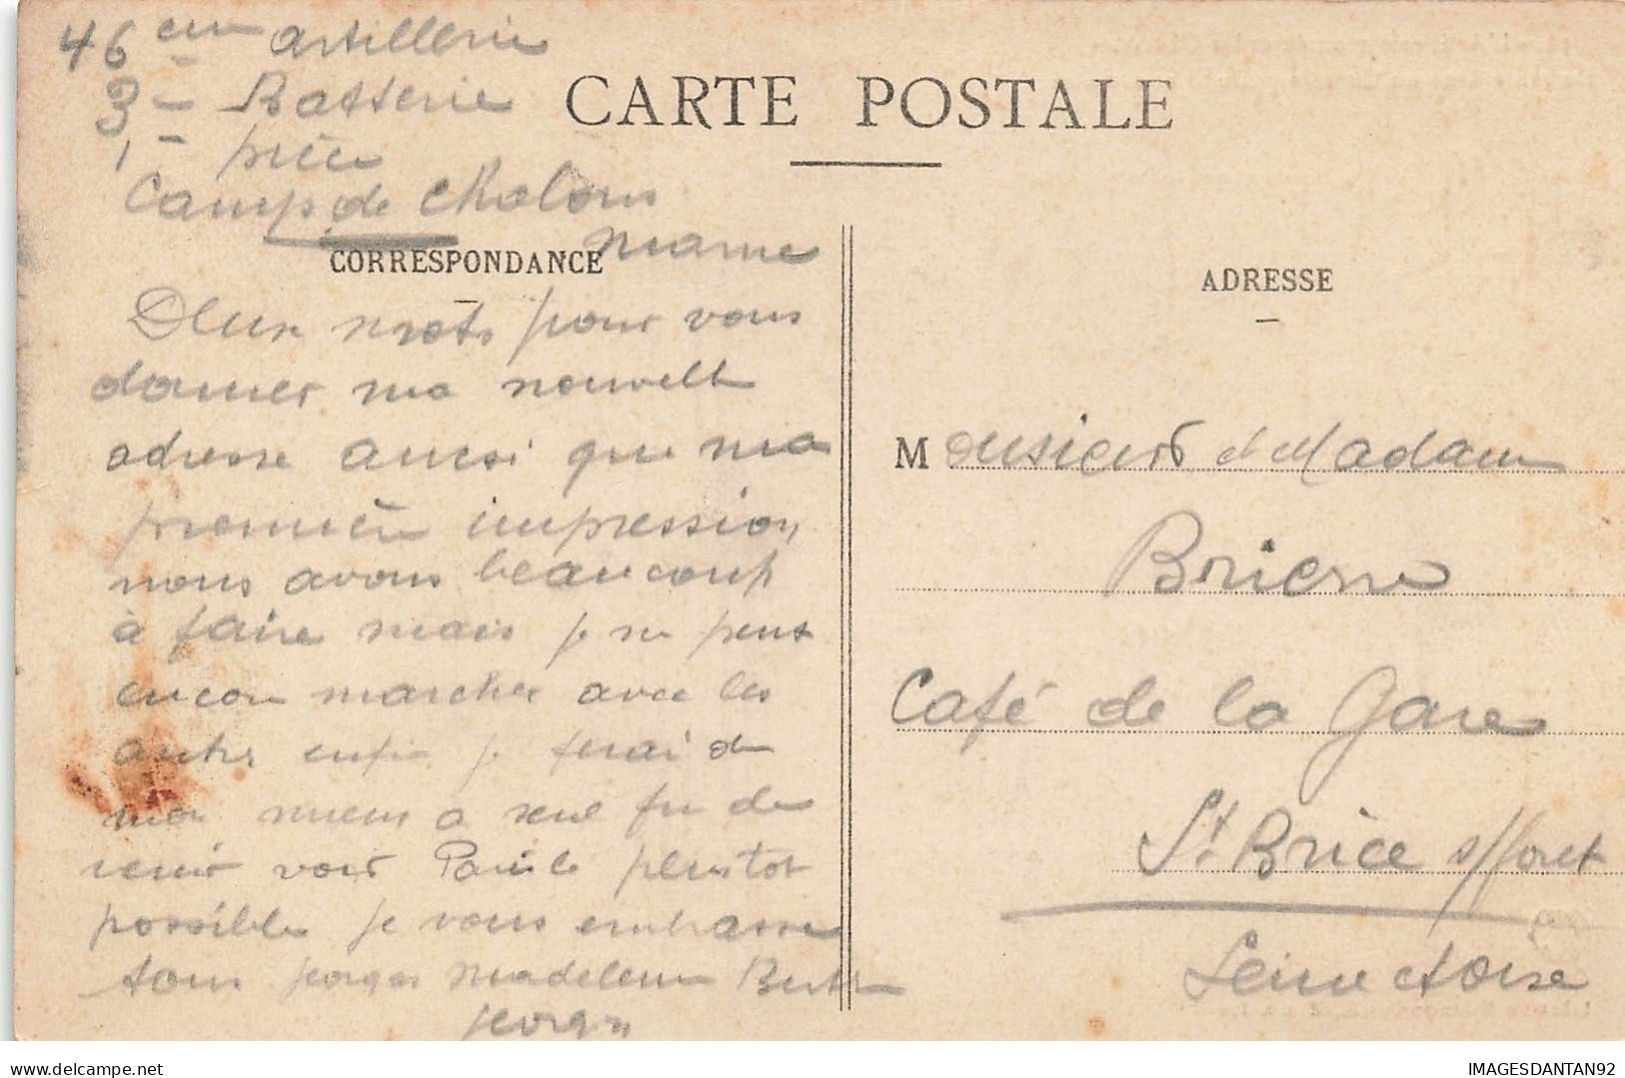 46 em artillerie
3 - Batterie
1 - pièce
Camp de Chalons
Marne
CARTE POSTALE
CORRESPONDANCE
Deux mots pour vous
donner ma nouvelle
adresse aussi que ma
première impression
nous avons beaucoup
à faire mais je ne peux
encore marcher avec les
autres enfin je ferai de
mon mieux a seul fin de
venir voir Paris le plustot
possible je vous embrasse
tous Georges Madeleine Berthe
Georges
ADRESSE
Monsieur et Madame
Brienne
Café de la Gare
St. Brice s/foret
Seine et Oise
IMAGESDANTAN92